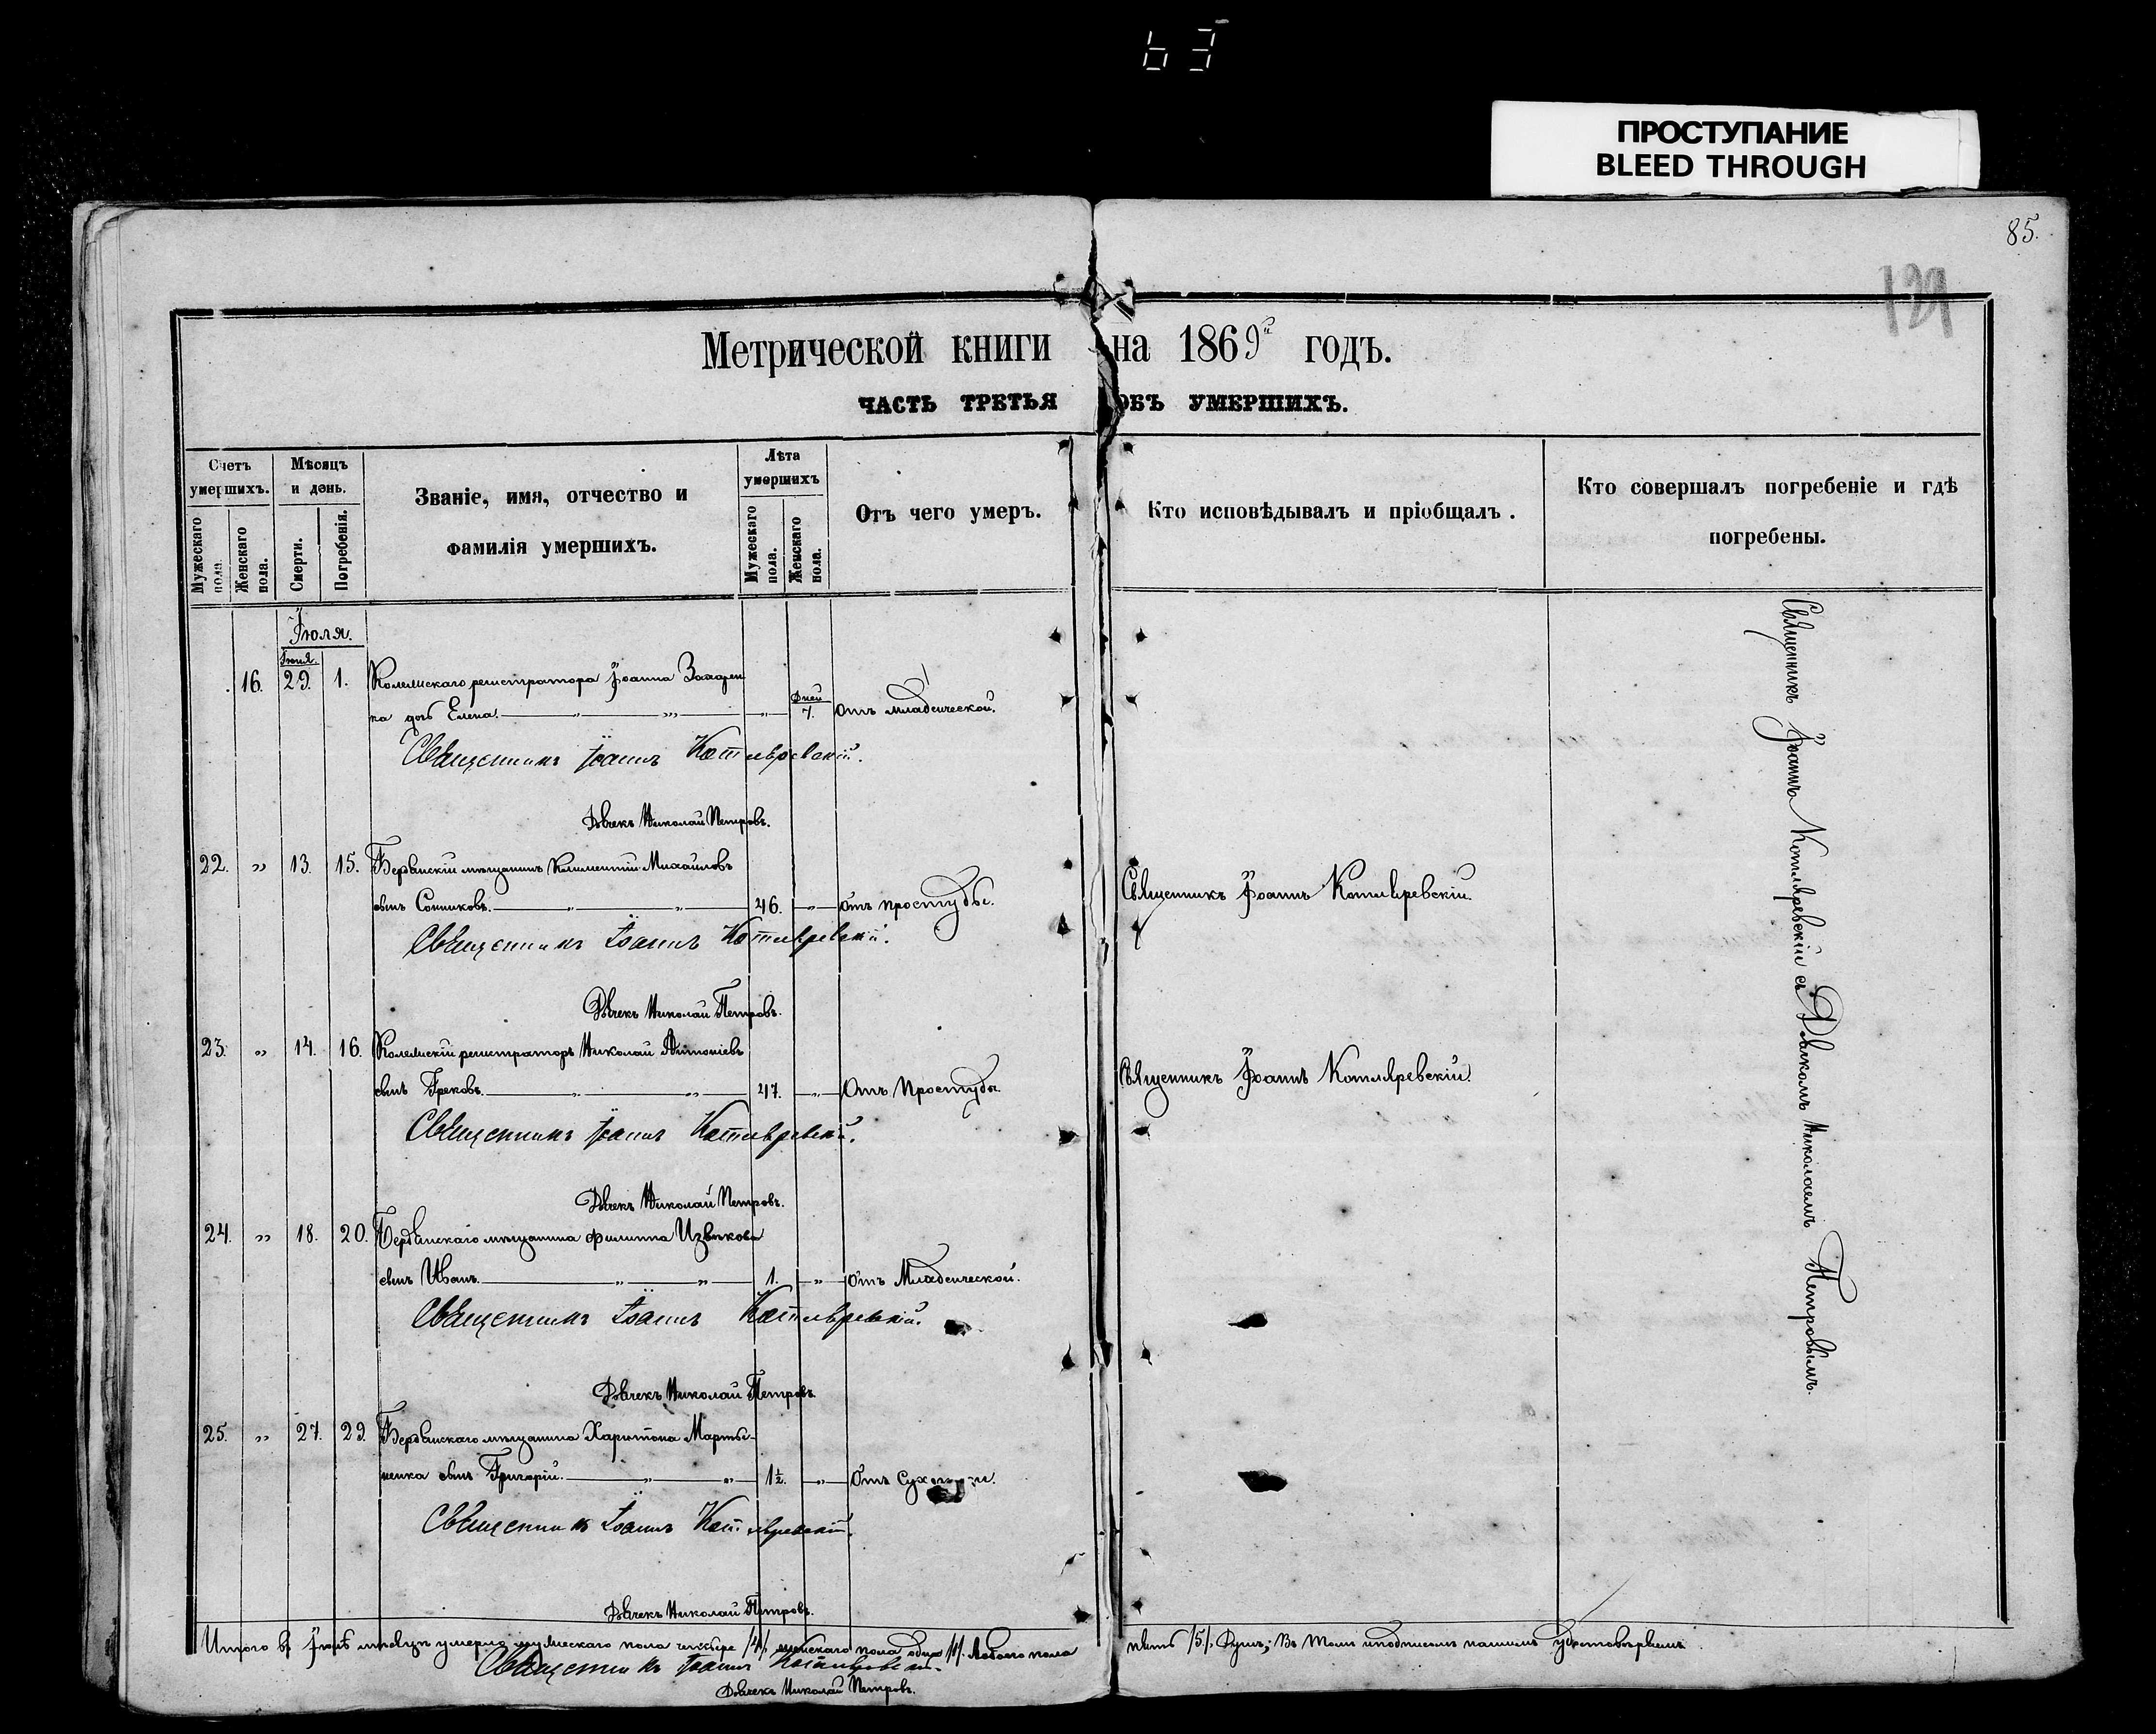 63
ПРОСТУПАНИЕ
BLEED THROUGH
85.
129
Метрической книги на 1869й годъ.
ЧАСТЬ ТРЕТЬЯ ОБЪ УМЕРШИХЪ.
Счетъ умершихъ.
Мужескаго пола.
Женскаго пола.
Мѣсяцъ и день.
Смерти.
Погребенія.
Званіе, имя, отчество и
фамилія умершихъ.
Лѣта умершихъ
Мужескаго пола.
Женскаго пола.
Отъ чего умеръ.
Кто исповѣдывалъ и пріобщалъ.
Кто совершалъ погребеніе и гдѣ
погребены.
Іюля.
Іюня.
16. 29. 1. Колежскаго регистратора Іоанна Захарен
ка дочь Елена. „ „ „ Дней 7. Отъ младенческой.
Священникъ Іоаннъ Котляревскій.
Дьячекъ Николай Петровъ.
22. „ 13. 15. Бердянскій мѣщанинъ Климентій Михайловъ
сынъ Сотниковъ. „ „ 46. „ Отъ простуды. Священникъ Іоаннъ Котляревскій.
Священникъ Іоаннъ Котляревскій.
Дьячекъ Николай Петровъ.
23. „ 14. 16. Колежскій регистраторъ Николай Антоніевъ
сынъ Грековъ. „ „ 47. „ Отъ Простуды. Священникъ Іоаннъ Котляревскій.
Священникъ Іоаннъ Котляревскій.
Дьячекъ Николай Петровъ.
24. „ 18. 20. Бердянскаго мѣщанина Филиппа Извѣкова
сынъ Иванъ. „ „ 1. „ Отъ Младенческой.
Священникъ Іоаннъ Котляревскій.
Дьячекъ Николай Петровъ.
25. „ 27. 29. Бердянскаго мѣщанина Харитона Марты-
ненка сынъ Григорій. „ „ 1½. „ Отъ
Священникъ Іоаннъ Котляревскій.
Дьячекъ Николай Петровъ.
Священникъ Іоаннъ Котляревскій съ Дьячкомъ Николаемъ Петровымъ.
Итого въ Іюлѣ мѣсяцѣ умерло мужескаго пола четыре /4/, женскаго пола одна /1/. Обоего пола пять /5/. Душъ; Въ томъ подписомъ нашимъ удостовѣряемъ
Священникъ Іоаннъ Котляревскій.
Дьячекъ Николай Петровъ.